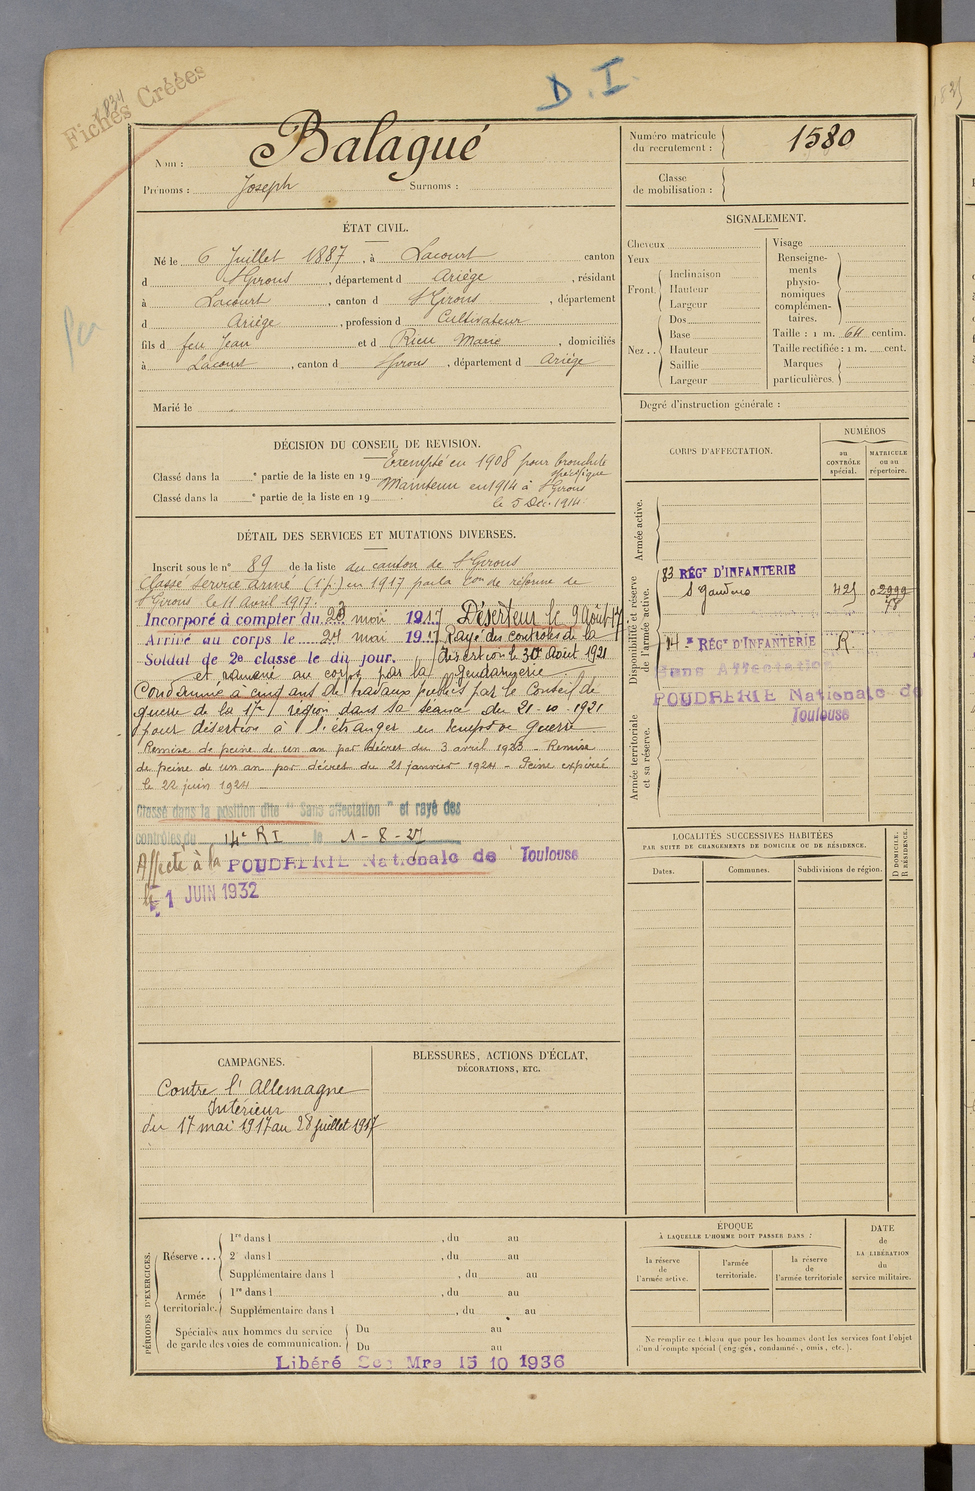 Fiches Créées
1834
D.I.
Nom : Balagué
Prénoms : Joseph Surnoms :
Numéro matricule du recrutement : 1580
Classe de mobilisation :
ÉTAT CIVIL.
Né le 6 Juillet 1887, à Lacourt canton
d St Girons, département d Ariège, résidant
à Lacourt, canton d St Girons, département
d Ariège, profession d Cultivateur
fils d feu Jean et d Rieu Marie, domiciliés
à Lacourt, canton d St Girons, département d Ariège
Marié le
SIGNALEMENT.
Cheveux
Yeux
Front. Inclinaison
Hauteur
Largeur
Nez.. Dos
Base
Hauteur
Saillie
Largeur
Visage
Renseigne-
ments
physio-
nomiques
complémen-
taires.
Taille : 1 m. 64 centim.
Taille rectifiée : 1 m. cent.
Marques
particulières.
Degré d'instruction générale :
DÉCISION DU CONSEIL DE REVISION.
Exempté en 1908 pour bronchite
spécifique
Classé dans la e partie de la liste en 19
Maintenu en 1914 à St Girons
Classé dans la e partie de la liste en 19
le 5 Déc. 1914.
DÉTAIL DES SERVICES ET MUTATIONS DIVERSES.
Inscrit sous le n° 89 de la liste du canton de St Girons
Classé service armé (1 p.) en 1917 par la Con de réforme de
St Girons le 11 Avril 1917.
Incorporé à compter du 23 mai 1917 Déserteur le 9 Août 17
Arrivé au corps le 24 mai 1917 Rayé des contrôles de la
Soldat de 2e classe le dit jour. désertion le 30 Août 1921
et ramené au corps par la Gendarmerie
Condamné à cinq ans de travaux publics par le Conseil de
guerre de la 17e région dans sa séance du 21-10-1921
pour désertion à l'étranger en temps de guerre
Remise de peine de un an par décret du 3 avril 1923 - Remise
de peine de un an par décret du 21 janvier 1924 - Peine expirée
le 22 juin 1924
Classé dans la position dite "Sans affectation" et rayé des
contrôles du 14e RI le 1-8-27
Affecté à la POUDRERIE Nationale de Toulouse
le 1 JUIN 1932
CORPS D'AFFECTATION.
NUMÉROS
au CONTRÔLE spécial.
MATRICULE ou au répertoire.
Armée active.
Disponibilité et réserve de l'armée active.
Armée territoriale et sa réserve.
83 RÉGt D'INFANTERIE
St Gaudens 425 02999
78
14e RÉGt D'INFANTERIE R.
Sans Affectation
POUDRERIE Nationale de
Toulouse
LOCALITÉS SUCCESSIVES HABITÉES
PAR SUITE DE CHANGEMENTS DE DOMICILE OU DE RÉSIDENCE.
D DOMICILE.
R RÉSIDENCE.
Dates. Communes. Subdivisions de région.
CAMPAGNES.
Contre l'Allemagne
Intérieur
du 17 mai 1917 au 28 juillet 1917
BLESSURES, ACTIONS D'ÉCLAT,
DÉCORATIONS, ETC.
PÉRIODES D'EXERCICES.
Réserve... 1re dans l , du au
2e dans l , du au
Supplémentaire dans l , du au
Armée territoriale. 1re dans l , du au
Supplémentaire dans l , du au
Spéciales aux hommes du service
de garde des voies de communication. Du au
Du au
Libéré Ser Mre 15 10 1936
ÉPOQUE
À LAQUELLE L'HOMME DOIT PASSER DANS :
la réserve de l'armée active.
l'armée territoriale.
la réserve de l'armée territoriale
DATE
de
LA LIBÉRATION
du
service militaire.
Ne remplir ce tableau que pour les hommes dont les services font l'objet
d'un décompte spécial (engagés, condamnés, omis, etc.).